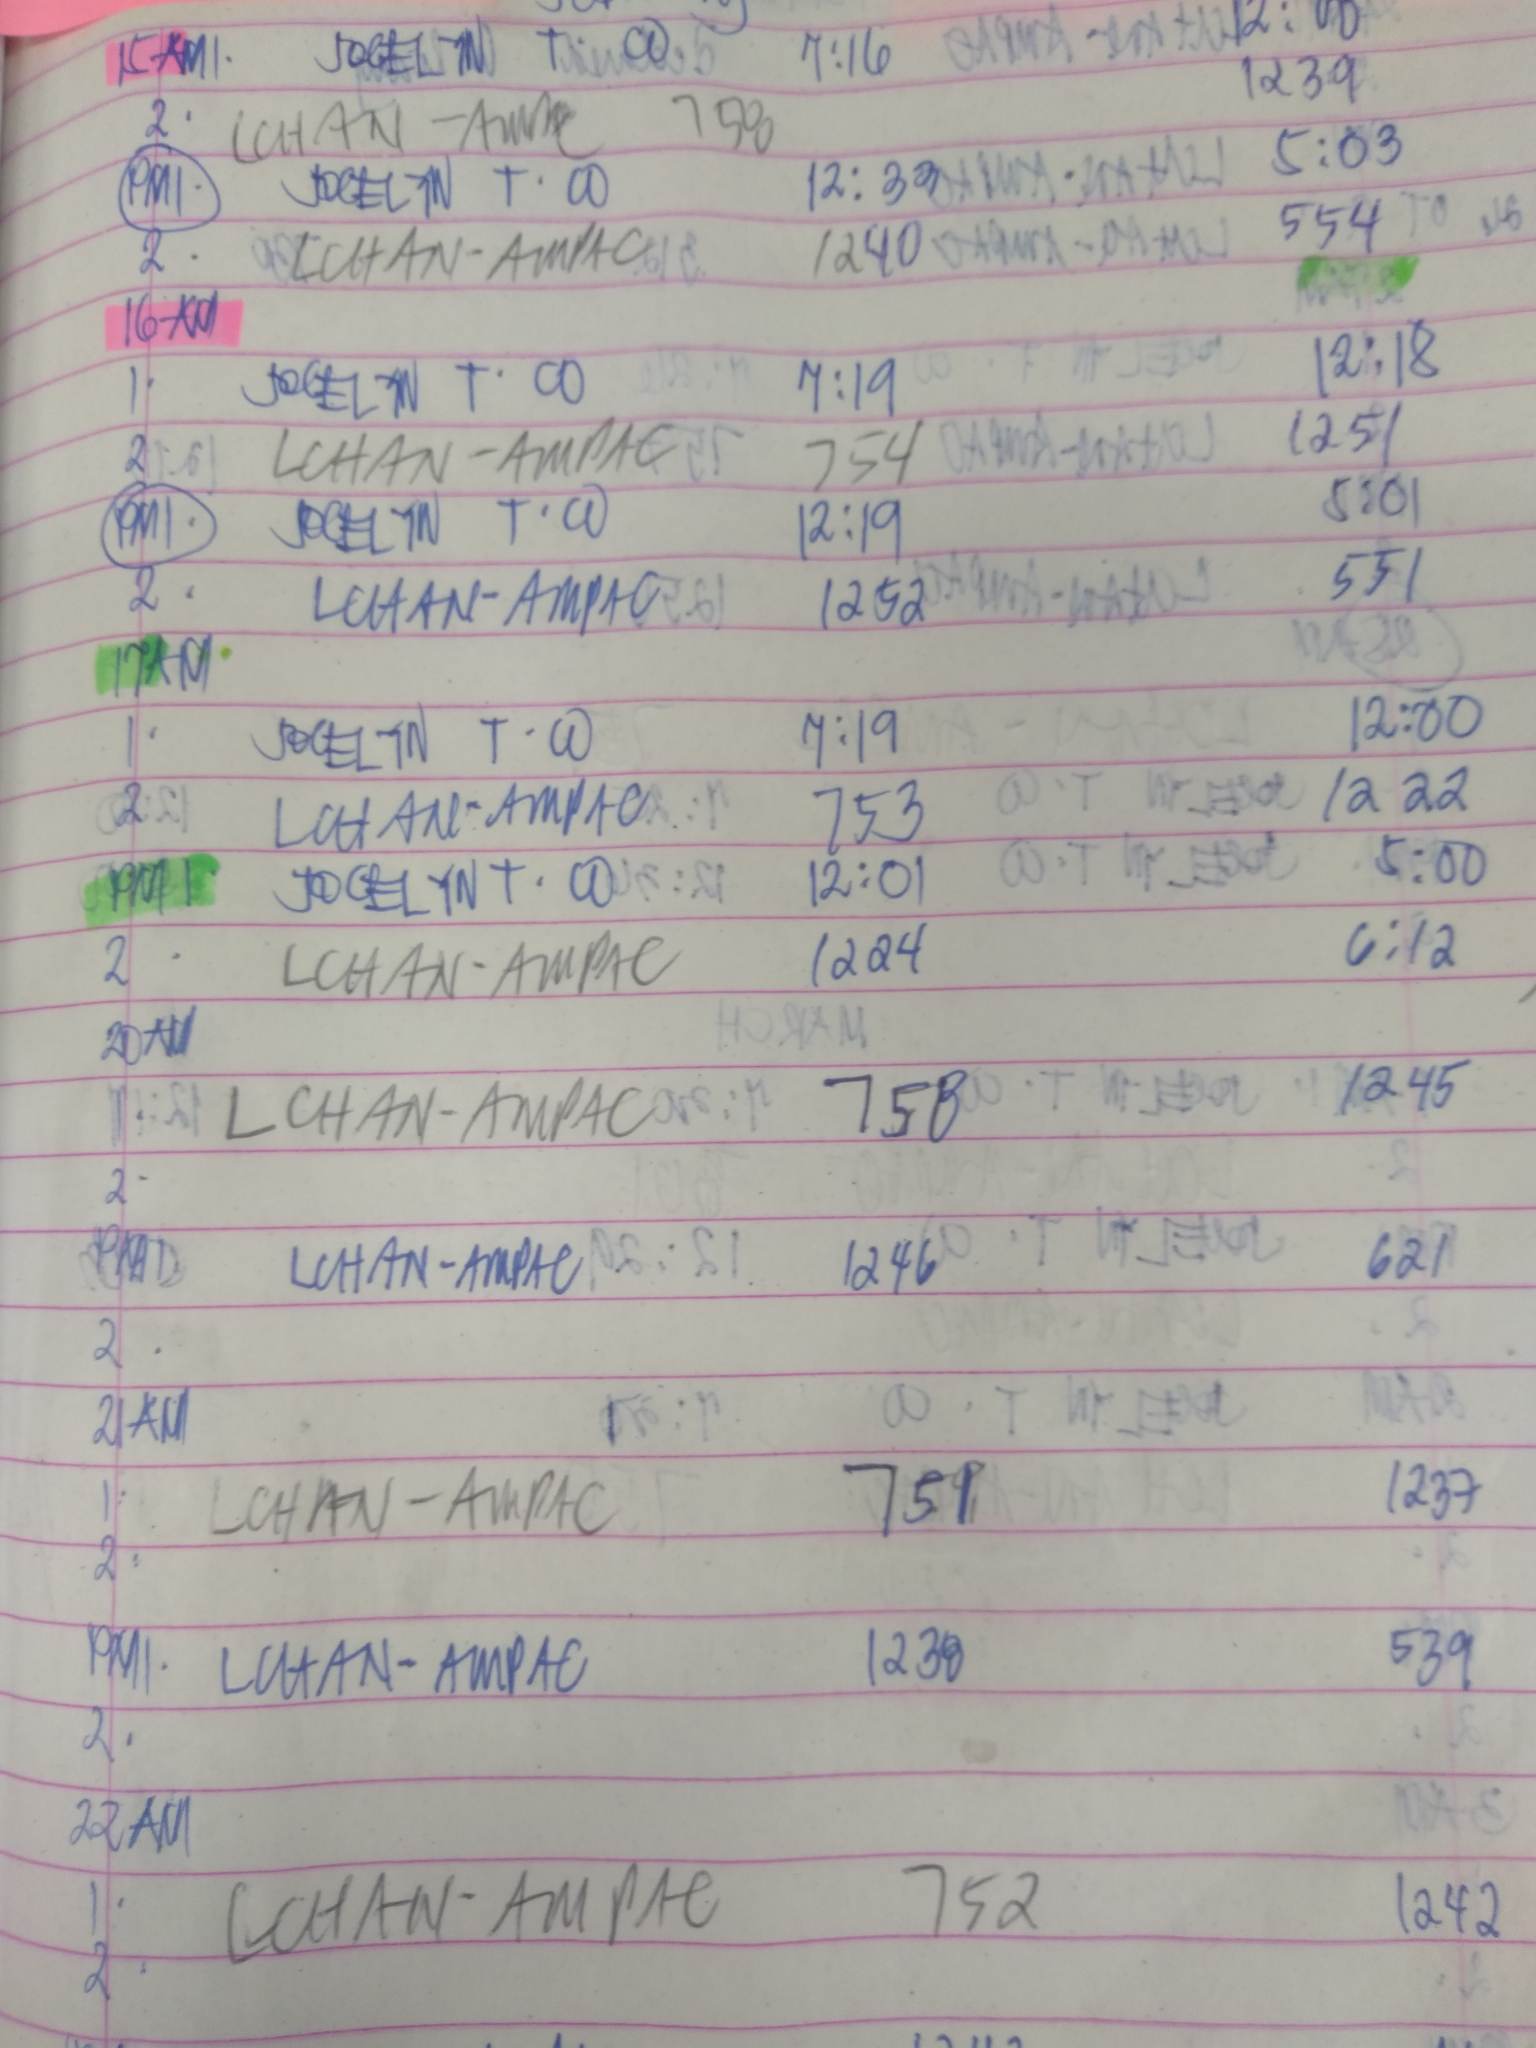 15 AM 1. JOCELYN T. CO 7:16 12:00
2. LCHAN-AMPAC 758 1239
PM 1. JOCELYN T. CO 12:33 5:03
2. LCHAN-AMPAC 1240 554
16 AM
1. JOCELYN T. CO 7:19 12:18
2 LCHAN-AMPAC 754 1251
PM 1. JOCELYN T. CO 12:19 5:01
2. LCHAN-AMPAC 1252 551
17 AM
1. JOCELYN T. CO 7:19 12:00
2 LCHAN-AMPAC 753 1222
PM 1 JOCELYN T. CO 12:01 5:00
2. LCHAN-AMPAC 1224 6:12
20 AM
1. LCHAN-AMPAC 758 1245
2.
PM LCHAN-AMPAC 1246 621
2.
21 AM
1. LCHAN-AMPAC 759 1237
2.
PM 1. LCHAN-AMPAC 1238 539
2.
22 AM
1. LCHAN-AMPAC 752 1242
2.